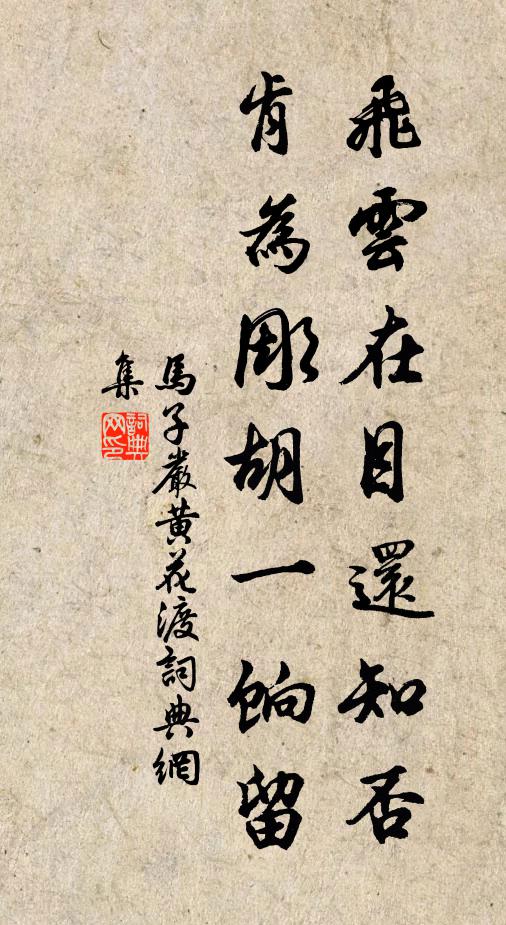 飛雲在目還知否
肯為彫胡一餉留
馬子嚴黃花渡詞典網
集
詞典
网印